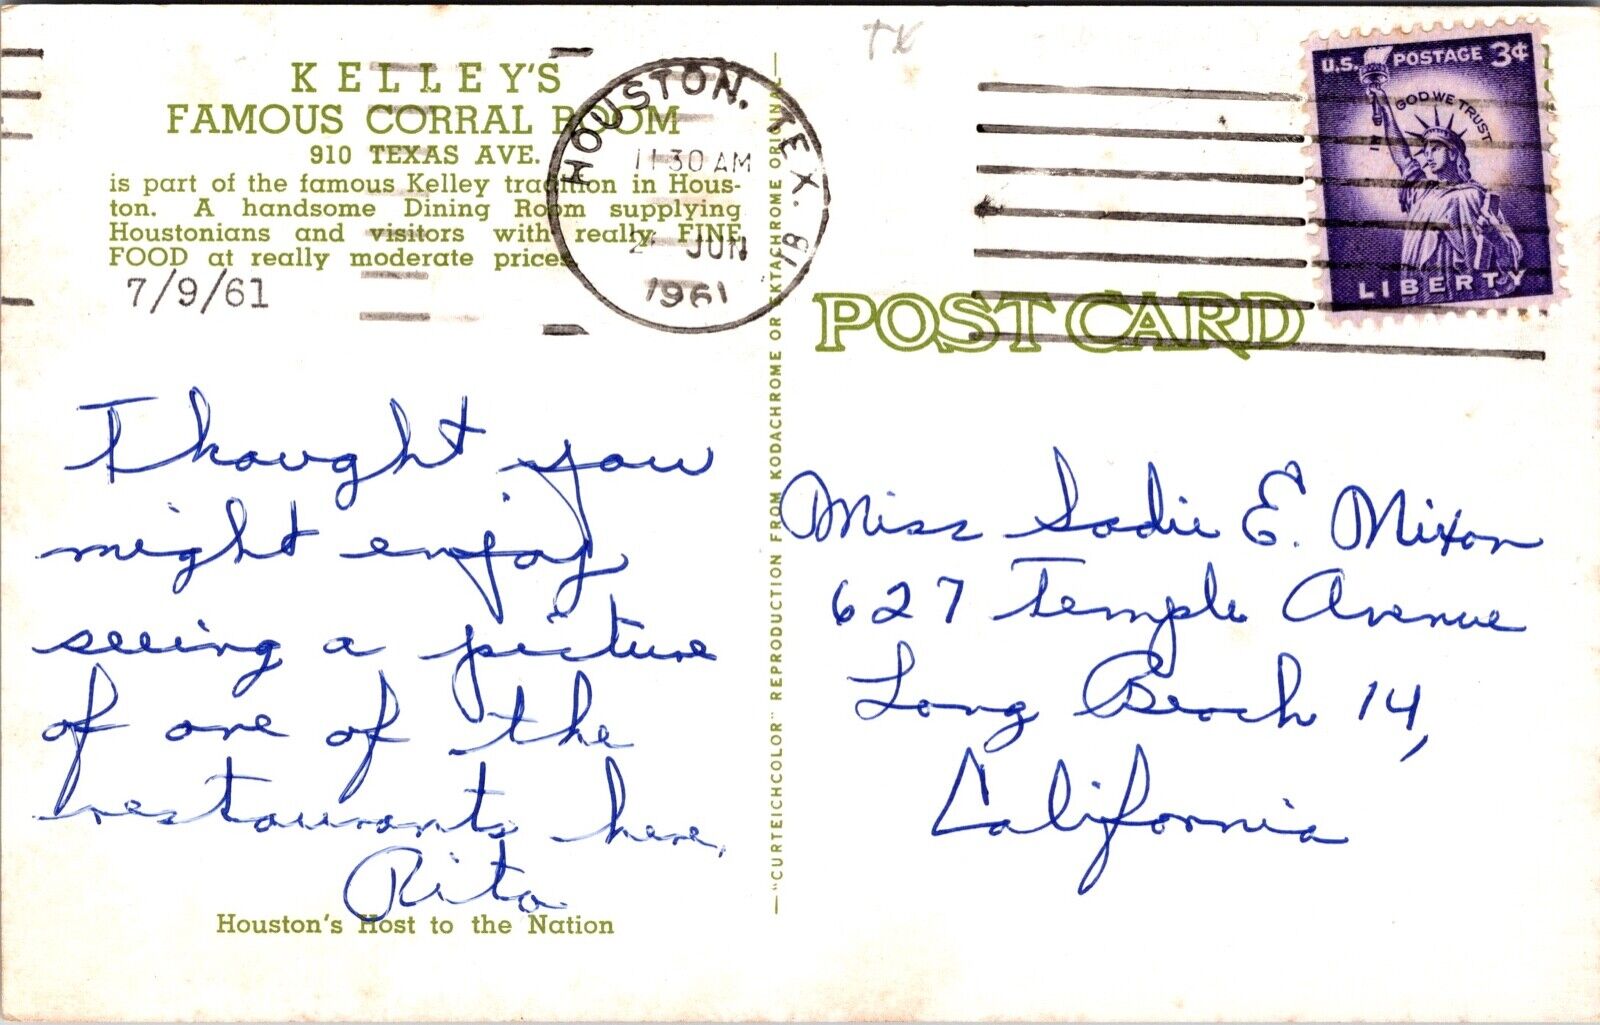 KELLEY'S
FAMOUS CORRAL ROOM
910 TEXAS AVE.
is part of the famous Kelley tradition in Hous-
ton. A handsome Dining Room supplying
Houstonians and visitors with really FINE
FOOD at really moderate prices
7/9/61
Thought you
might enjoy
seeing a picture
of one of the
restaurants here,
Rita
Houston's Host to the Nation
"CURTEICHCOLOR" REPRODUCTION FROM KODACHROME OR EKTACHROME ORIGINAL
TX
HOUSTON, TEX. 18
11 30 AM
JUN
1961
U.S. POSTAGE 3¢
IN GOD WE TRUST
LIBERTY
POST CARD
Miss Sadie E. Mixon
627 Temple Avenue
Long Beach 14,
California